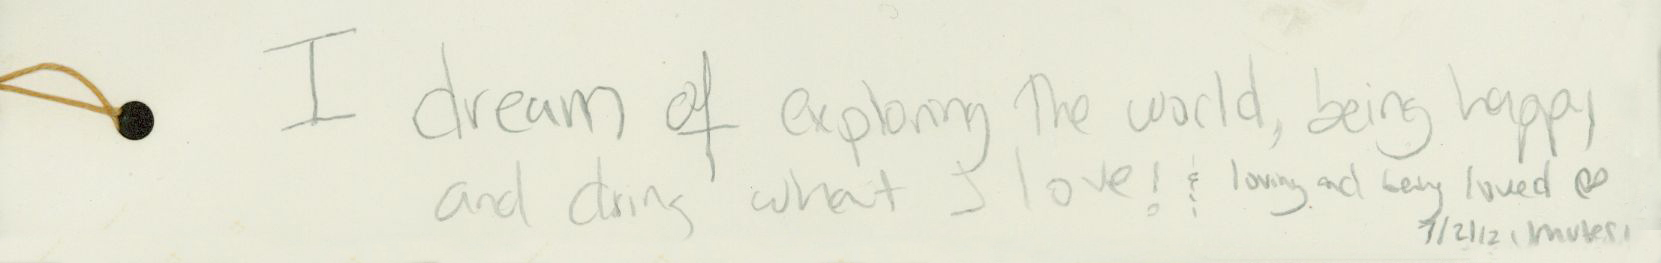 I dream of exploring the world, being happy
and doing what I love! & loving and being loved ♡
7/2/12